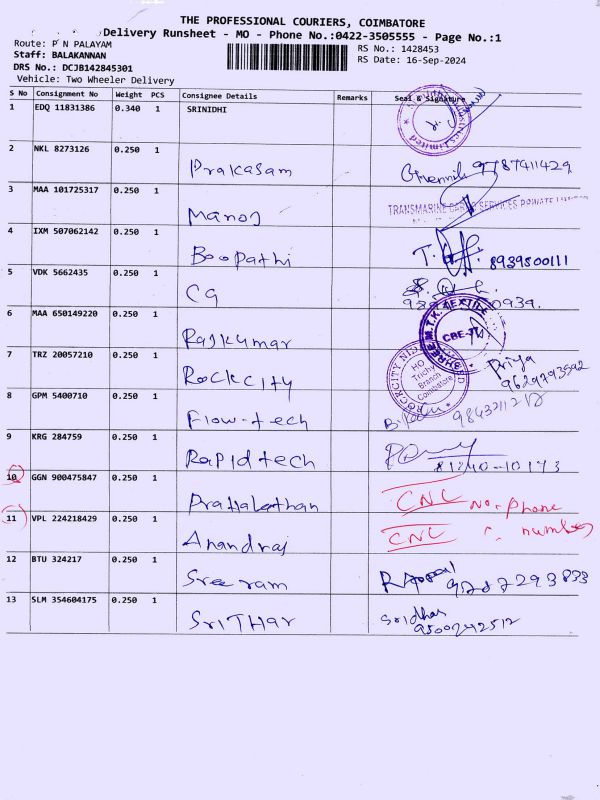 THE PROFESSIONAL COURIERS, COIMBATORE
Delivery Runsheet - MO - Phone No.:0422-3505555 - Page No.:1
Route: P N PALAYAM
Staff: BALAKANNAN
DRS No.: DCJB142845301
Vehicle: Two Wheeler Delivery
RS No.: 1428453
RS Date: 16-Sep-2024
S No Consignment No Weight PCS Consignee Details Remarks Seal & Signature
1 EDQ 11831386 0.340 1 SRINIDHI
2 NKL 8273126 0.250 1 Prakasam 9787411429
3 MAA 101725317 0.250 1 Manoj TRANSMARINE CARGO SERVICES PRIVATE LIMITED
4 IXM 507062142 0.250 1 Boopathi 8939500111
5 VDK 5662435 0.250 1 CG
6 MAA 650149220 0.250 1 Rajkumar SHREE M.T.K. TEXTILE CBE
7 TRZ 20057210 0.250 1 Rockcity HO Trichy Branch Coimbatore Priya 9629793592
8 GPM 5400710 0.250 1 Flow-tech
9 KRG 284759 0.250 1 Rapidtech 81240-10173
10 GGN 900475847 0.250 1 CNL No. Phone
11 VPL 224218429 0.250 1 Anandraj CNL number
12 BTU 324217 0.250 1 Sreeram 9787293833
13 SLM 354604175 0.250 1 SriTHar Sridhar 9500242512